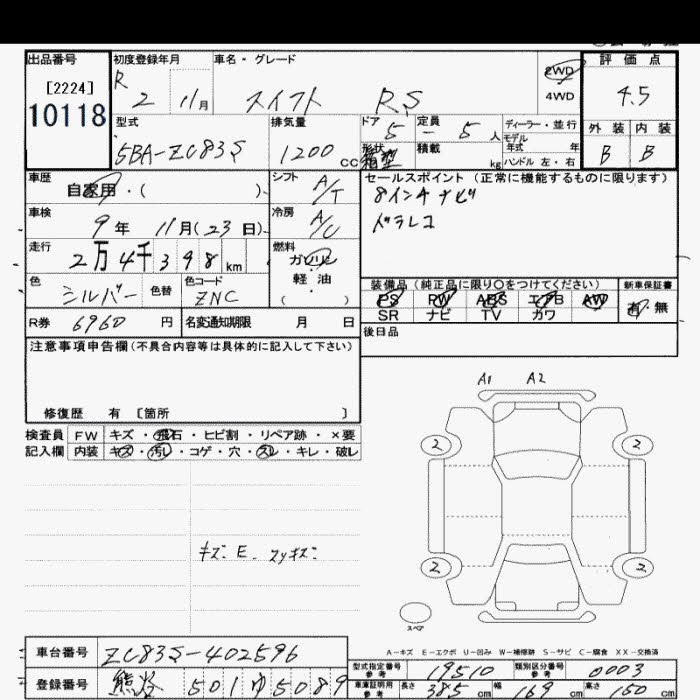 出品番号 初度登録年月 車名・グレード 2WD 評価点
[2224] R 2 11月 スイフト RS 4WD 4.5
10118 型式 排気量 ドア 定員 ディーラー・並行 外装 内装
5BA-ZC83S 1200 cc 5 - 5人 モデル年式 年 B B
形状 箱型 積載 kg ハンドル 左・右
車歴 自家用・( ) シフト A/T セールスポイント(正常に機能するものに限ります)
車検 9年 11月(23日) 冷房 A/C 8インチナビ
走行 2万4千398km 燃料 ガソリン ドラレコ
軽油
( )
色 シルバー 色替 色コード ZNC 装備品(純正品に限り○をつけてください) 新車保証書
PS PW ABS エアB AW 有 無
R券 6960円 名変通知期限 月 日 SR ナビ TV カワ
注意事項申告欄(不具合内容等は具体的に記入して下さい) 後日品
修復歴 有 [箇所 ]
A1 A2
検査員 FW キズ・飛石・ヒビ割・リペア跡・×要
記入欄 内装 キズ・汚レ・コゲ・穴・スレ・キレ・破レ
2 2
キズ E
2 2
スペア
A-キズ E-エクボ U-凹み W-補修跡 S-サビ C-腐食 XX-交換済
車台番号 ZC83S-402596 型式指定番号 参考 19510 類別区分番号 参考 0003
登録番号 熊谷 501 ゆ 5089 車庫証明用 参考 長さ 385cm 幅 169cm 高さ 150cm